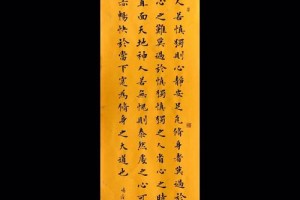 人若慎獨則心靜安足凡脩身者莫過於
心之難莫過於慎獨慎獨之人省心之時
直面天地神人若無愧則泰然處之心可
亦暢快於當下實為脩身之大道也